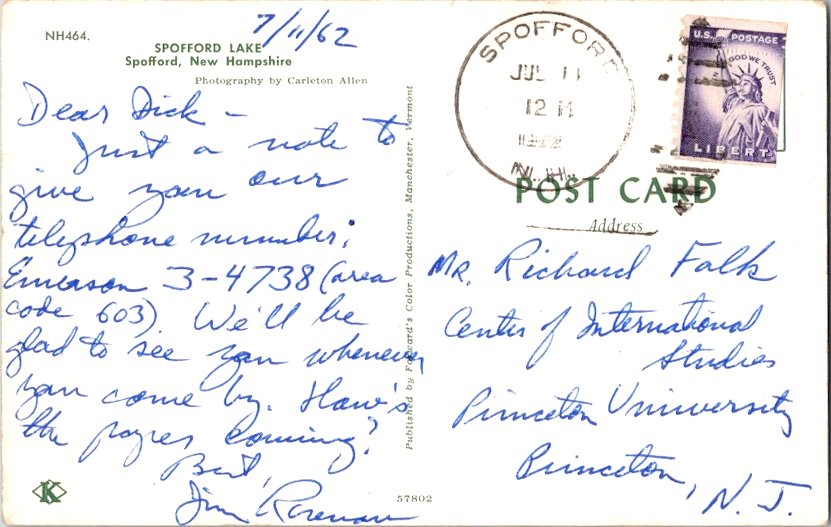 NH464.
7/11/62
SPOFFORD LAKE
Spofford, New Hampshire
Photography by Carleton Allen
Dear Dick –
Just a note to
give you our
telephone number:
Emerson 3-4738 (area
code 603). We'll be
glad to see you whenever
you come by. How's
the papers coming?
Best,
Jim
K
Published by Forward's Color Productions, Manchester, Vermont
57802
SPOFFORD
JUL 11
12 M
1962
N.H.
U.S. POSTAGE
IN GOD WE TRUST
LIBERTY
POST CARD
Address
Mr. Richard Falk
Center of International
Studies
Princeton University
Princeton, N.J.